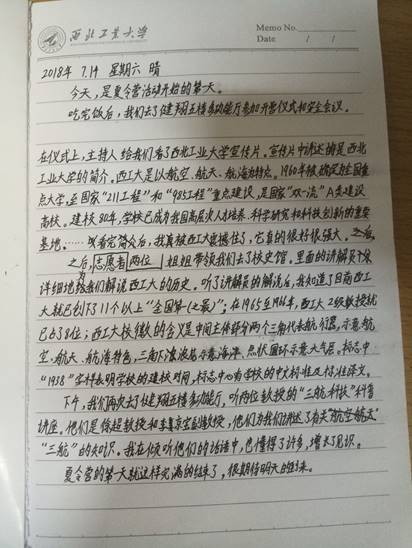 西北工业大学
Memo No.
Date / /
2018年 7.14 星期六 晴
今天,是夏令营活动开始的第一天。
吃完饭后,我们去了健翔五楼多功能厅参加开营仪式和安全会议。
在仪式上,主持人给我们看了西北工业大学宣传片。宣传片中讲述的是西北
工业大学的简介。西工大是以航空、航天、航海为特点。1960年被确定为全国重
点大学,至国家“211工程”和“985工程”重点建设,是国家“双一流”A类建设
高校。建校80年,学校已成为我国高层次人才培养、科学研究和科技创新的重要
基地。……观看完简介后,我真被西工大震撼住了,它真的很好很强大。之后,
之后,志愿者两位姐姐带领我们去了校史馆。里面的讲解员
详细地给我们解说西工大的历史。听了讲解员的解说后,我知道了目前西工
大就已创下了11个以上“全国第一(之最)”;在1965至 西工大2级教授就
已占38位;西工大校徽的含义是中间主体部分两个三角代表航 示意航
空、航天、航海特色,三角下波浪底示意海洋,点状圆环示意大气层。标志中
“1938”字样表明学校的建校时间,标志中心为学校的中文标准及标准译文。
下午,我们再次去了健翔五楼多功能厅,听两位教授的“三航科技”科普
讲座。他们是 教授和 副教授,他们为我们讲述了有关“航空航天”
“三航”的知识。我在倾听他们的话语中,也懂得了许多,增长了见识。
夏令营的第一天就这样完满的结束了,很期待明天的到来。